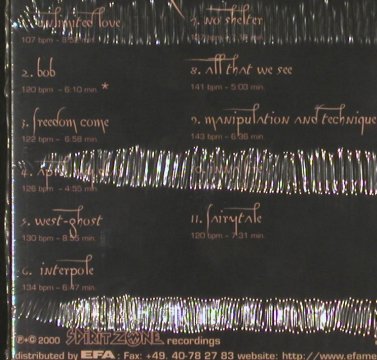 unlimited love
107 bpm -
2. bob
120 bpm - 6:10 min. *
3. freedom come
122 bpm - 6:58 min.
126 bpm - 4:55 min.
5. west-ghost
130 bpm - 8:55 min.
6. interpole
134 bpm - 6:47 min.
7. no shelter
8. all that we see
141 bpm - 5:03 min.
9. manipulation and technique
143 bpm - 6:36 min.
11. fairytale
120 bpm - 7:31 min.
℗+© 2000 SPIRITZONE recordings
distributed by EFA : Fax: +49. 40-78 27 83 website: http://www.efam